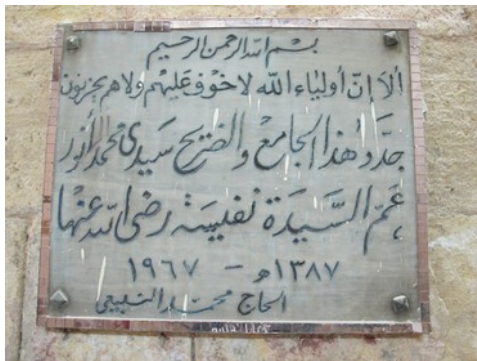 بسم الله الرحمن الرحيم
ألا إن أولياء الله لا خوف عليهم ولا هم يحزنون
جدد هذا الجامع والضريح سيدى محمد الأنور
عم السيدة نفيسة رضى الله عنها
١٣٨٧هـ - ١٩٦٧
الحاج محمد